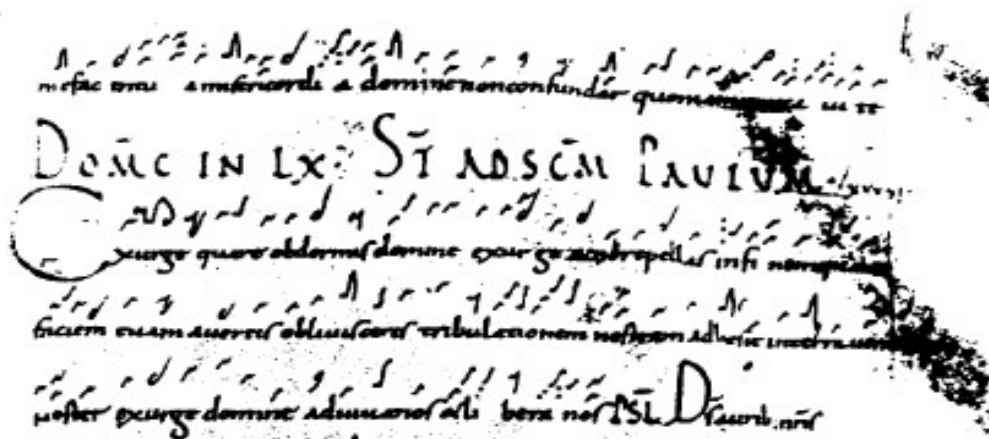 me fac in tu a misericordi a domine non confundar quoniam in te
DOMC IN LX ST AD SCM PAULUM
Exurge quare obdormis domine exur ge et ne repellas in fi nem quare
faciem tuam avertis oblivisceris tribulationem nostram adhesit in terra venter
noster exurge domine adiuva nos et li bera nos PSL Ds aurib nris